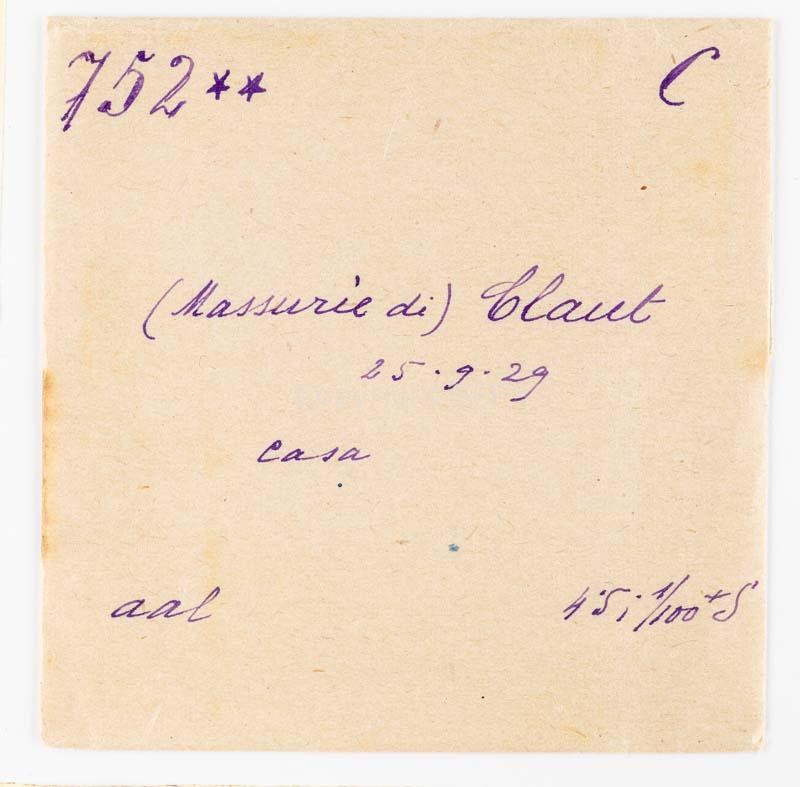 752** C
(Massurie di) Claut
25.9.29
casa
aal 4.5; 1/100 + S